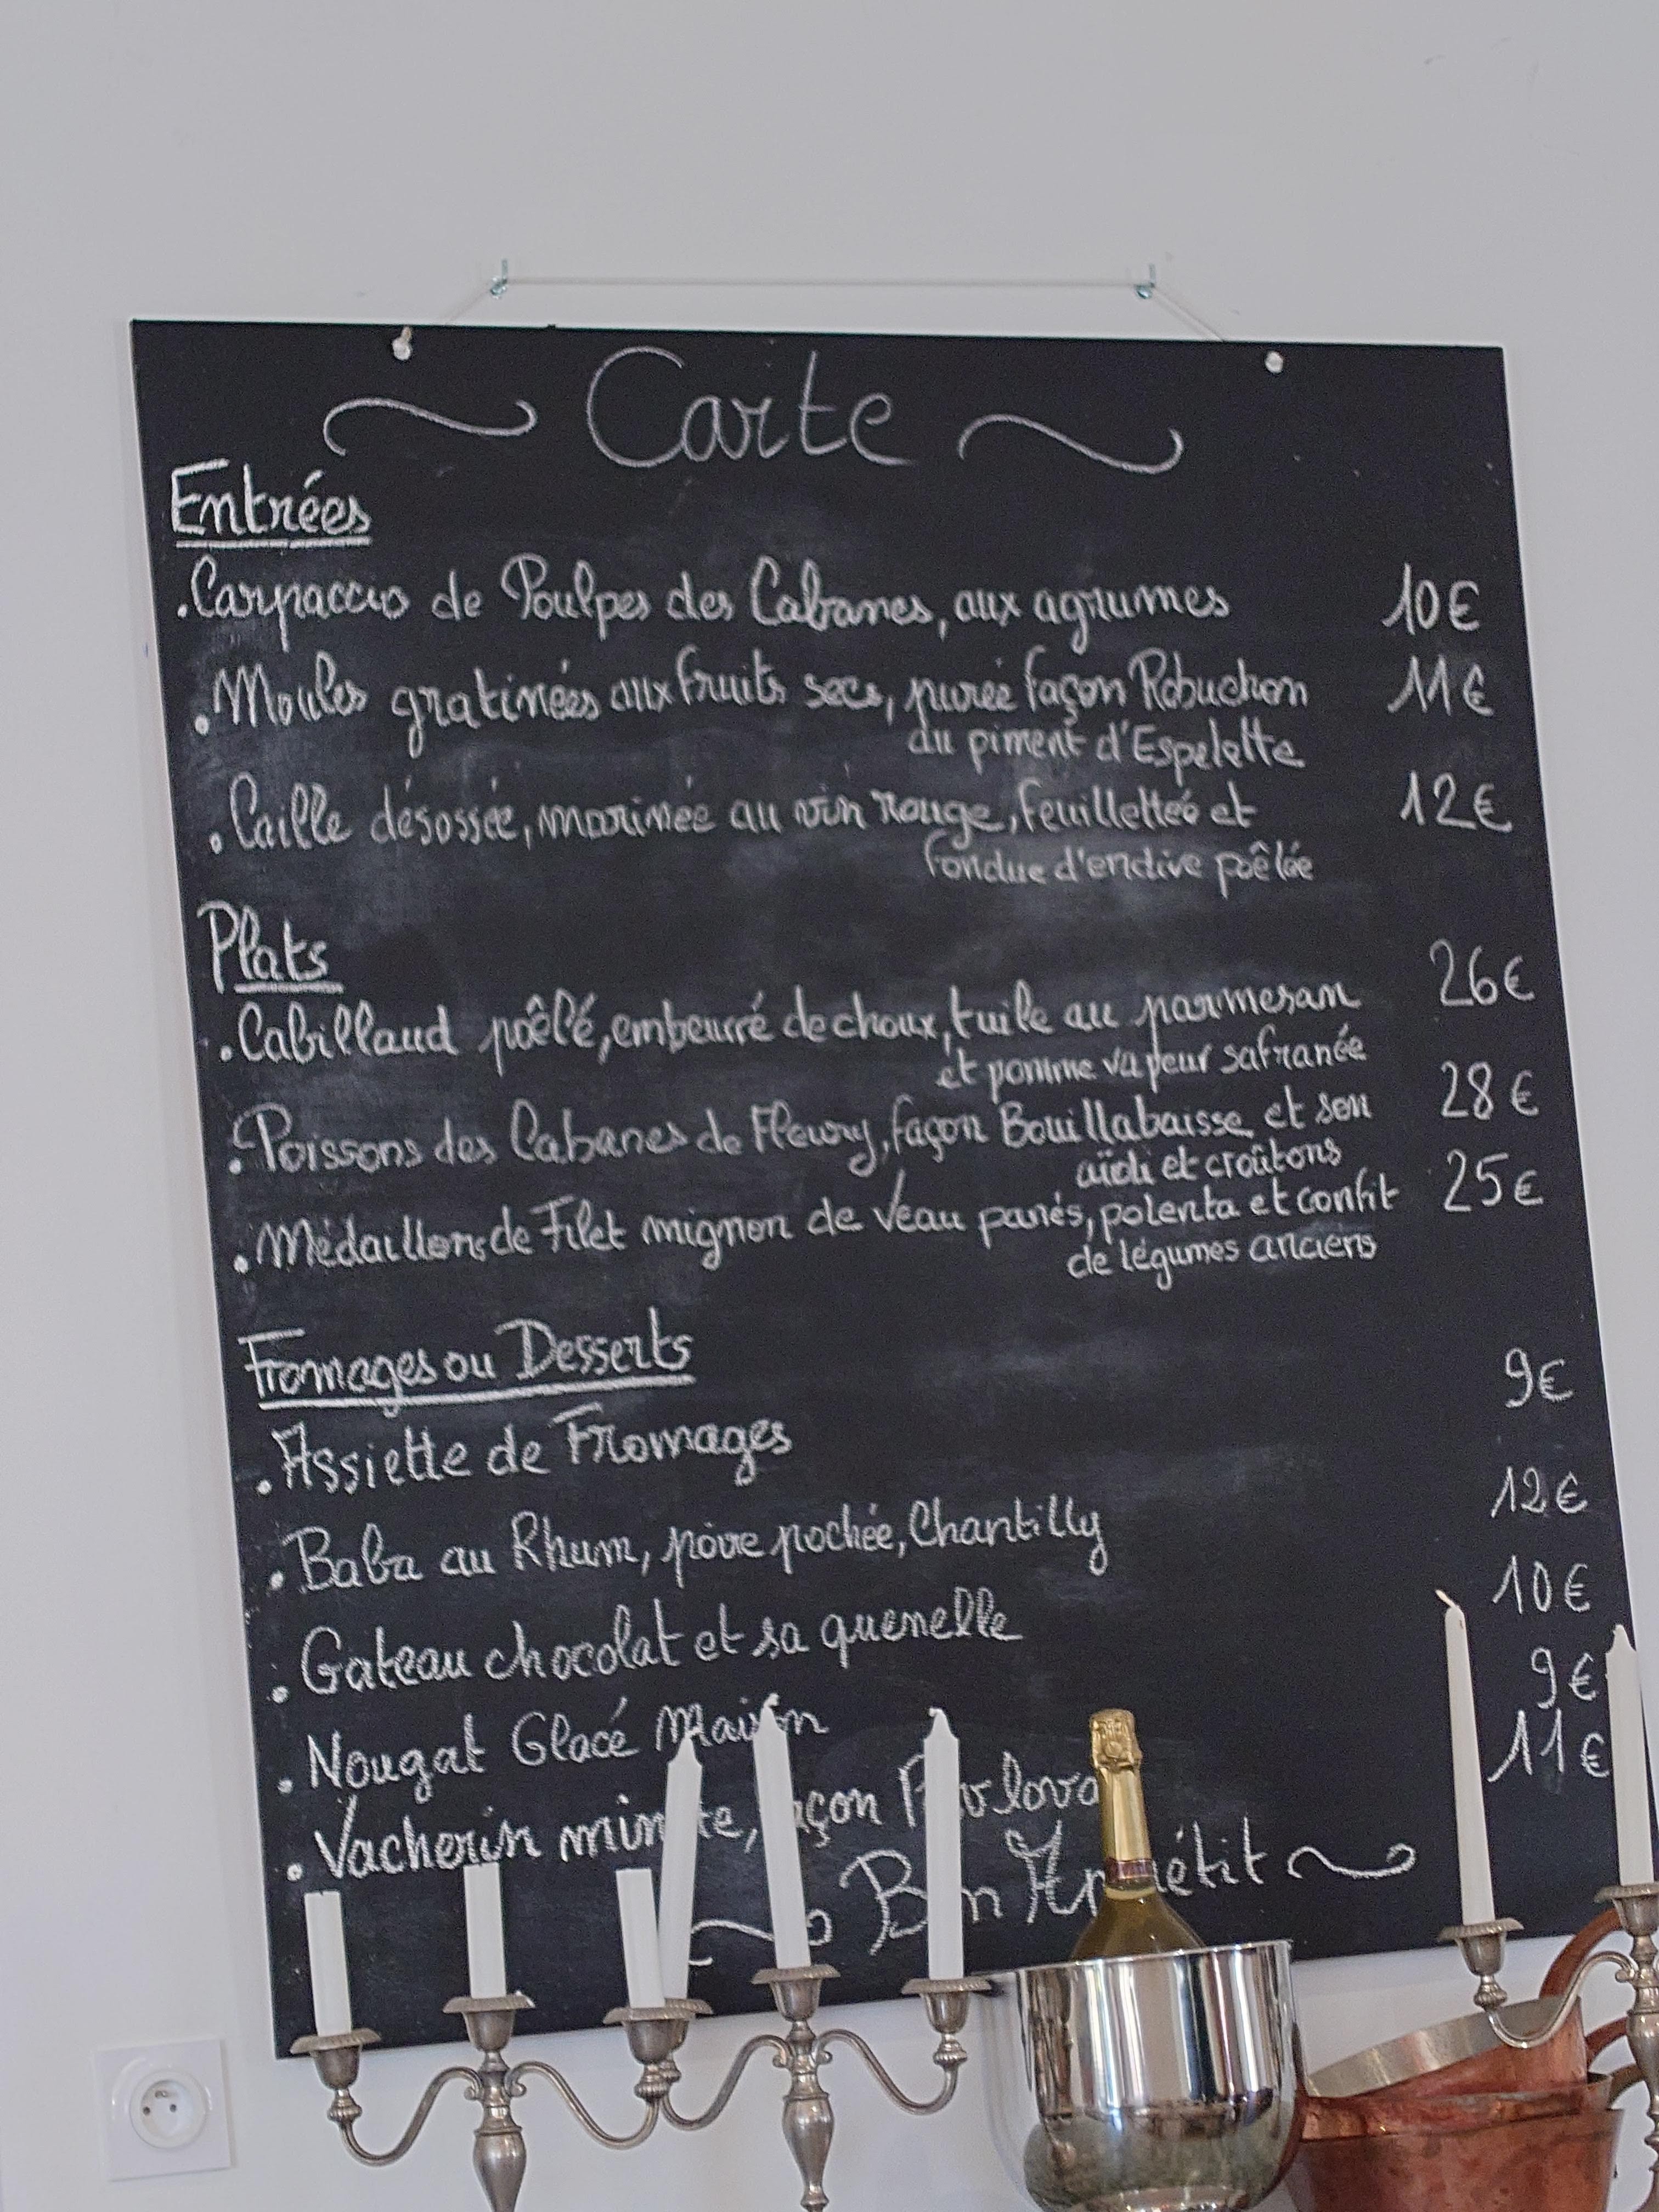 Carte
Entrées
.Carpaccio de Poulpes des Cabanes, aux agrumes 10€
.Moules gratinées aux fruits secs, purée façon Robuchon 11€
au piment d'Espelette
.Caille désossée, marinée au vin rouge, feuilletteé et 12€
fondue d'endive poêlée
Plats
.Cabillaud poêlé, embeurré de choux, tuile au parmesan 26€
et pomme vapeur safranée
.Poissons des Cabanes de Fleury, façon Bouillabaisse et son 28€
aïoli et croûtons
.Médaillons de Filet mignon de Veau panés, polenta et confit 25€
de légumes anciens
Fromages ou Desserts
.Assiette de Fromages 9€
.Baba au Rhum, poire pochée, Chantilly 12€
.Gateau chocolat et sa quenelle 10€
.Nougat Glacé Maison 9€
.Vacherin minute, façon Pavlova 11€
Bon Appétit